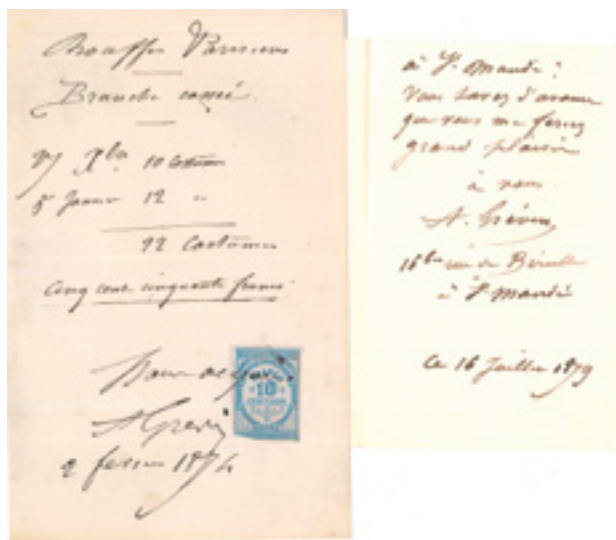 Bouffes Parisiens
Branche cassée.
27 Xbre 10 Costumes
8 Janvier 12 "
22 Costumes
Cinq cent cinquante francs
Pour acquit.
10
CENTIMES
A Grévin
2 fevrier 1874
à St Mandé :
Vous savez d'avance
que vous me ferez
grand plaisir
à vous
A. Grévin
16 bis rue de Bérulle
à St Mandé
Ce 16 Juillet 1879